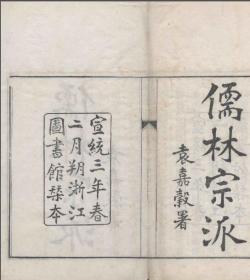 儒林宗派
袁嘉穀署
宣統三年春
二月朔浙江
圖書館栞本